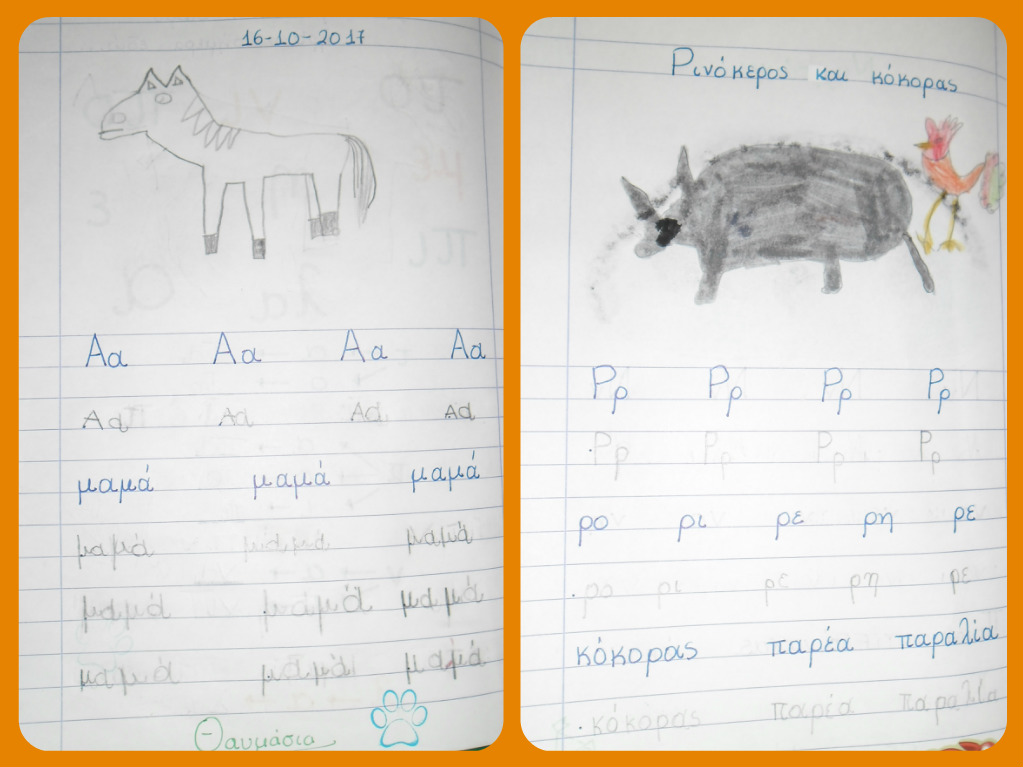 16-10-2017
Αα Αα Αα Αα
Αα Αα Αα Αα
μαμά μαμά μαμά
μαμά μαμά μαμά
μαμά μαμά μαμά
μαμά μαμά μαμά
Θαυμάσια
Ρινόκερος και κόκορας
Ρρ Ρρ Ρρ Ρρ
Ρρ Ρρ Ρρ Ρρ
ρο ρι ρε ρη ρε
ρο ρι ρε ρη ρε
κόκορας παρέα παραλία
κόκορας παρέα παραλία